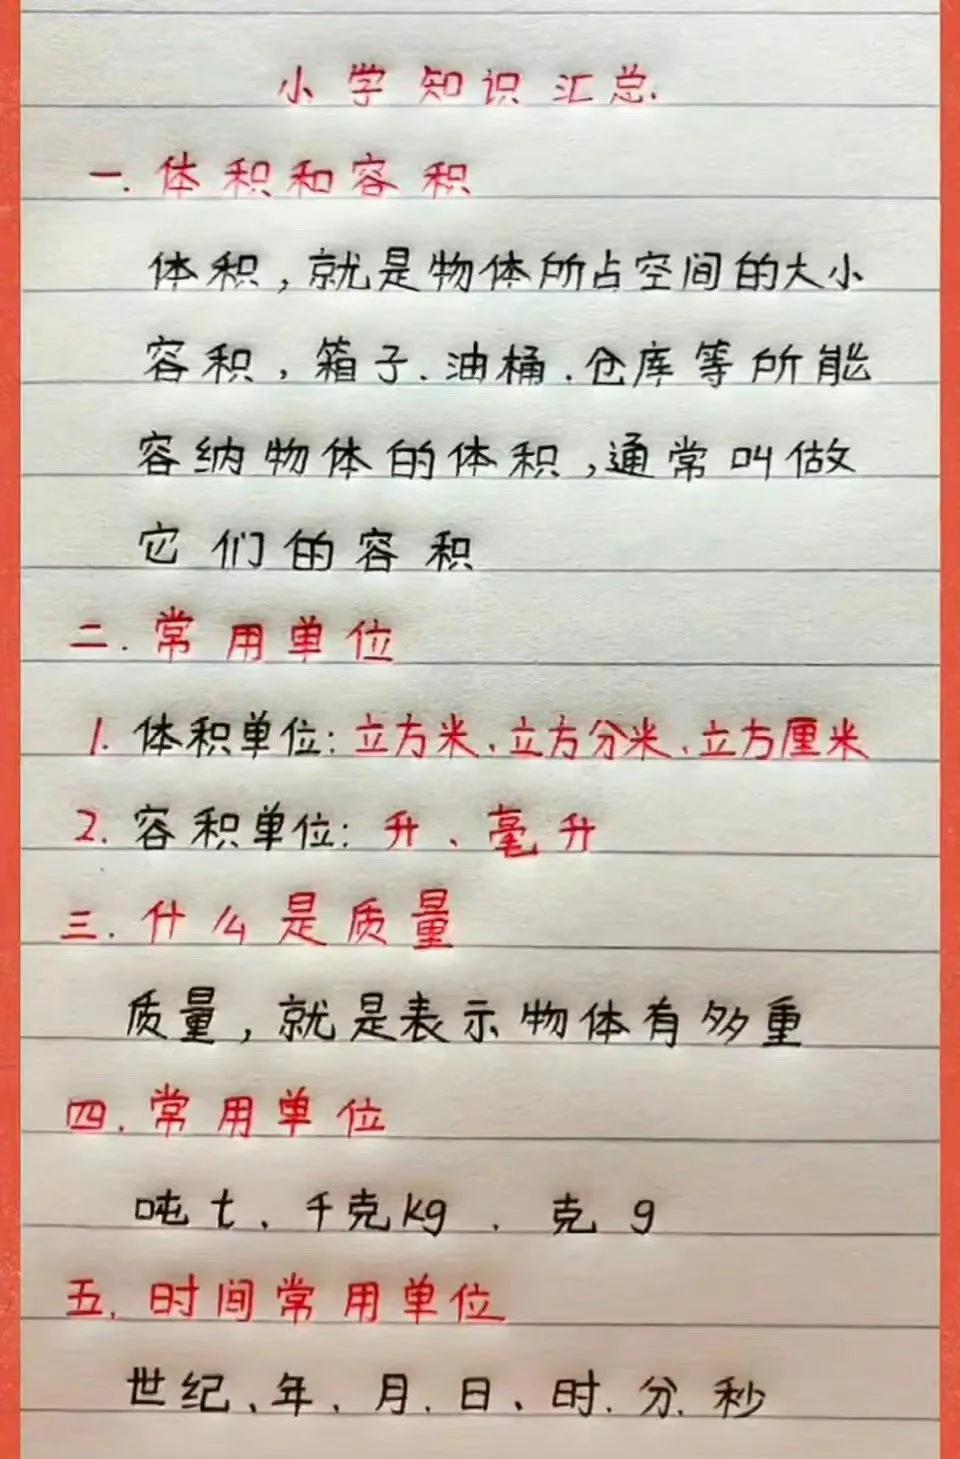 小学知识汇总.
一.体积和容积
体积,就是物体所占空间的大小
容积,箱子.油桶.仓库等所能
容纳物体的体积,通常叫做
它们的容积
二.常用单位
1.体积单位:立方米、立方分米、立方厘米
2.容积单位:升、毫升
三.什么是质量
质量,就是表示物体有多重
四.常用单位
吨t、千克kg、克g
五.时间常用单位
世纪、年、月.日、时.分.秒